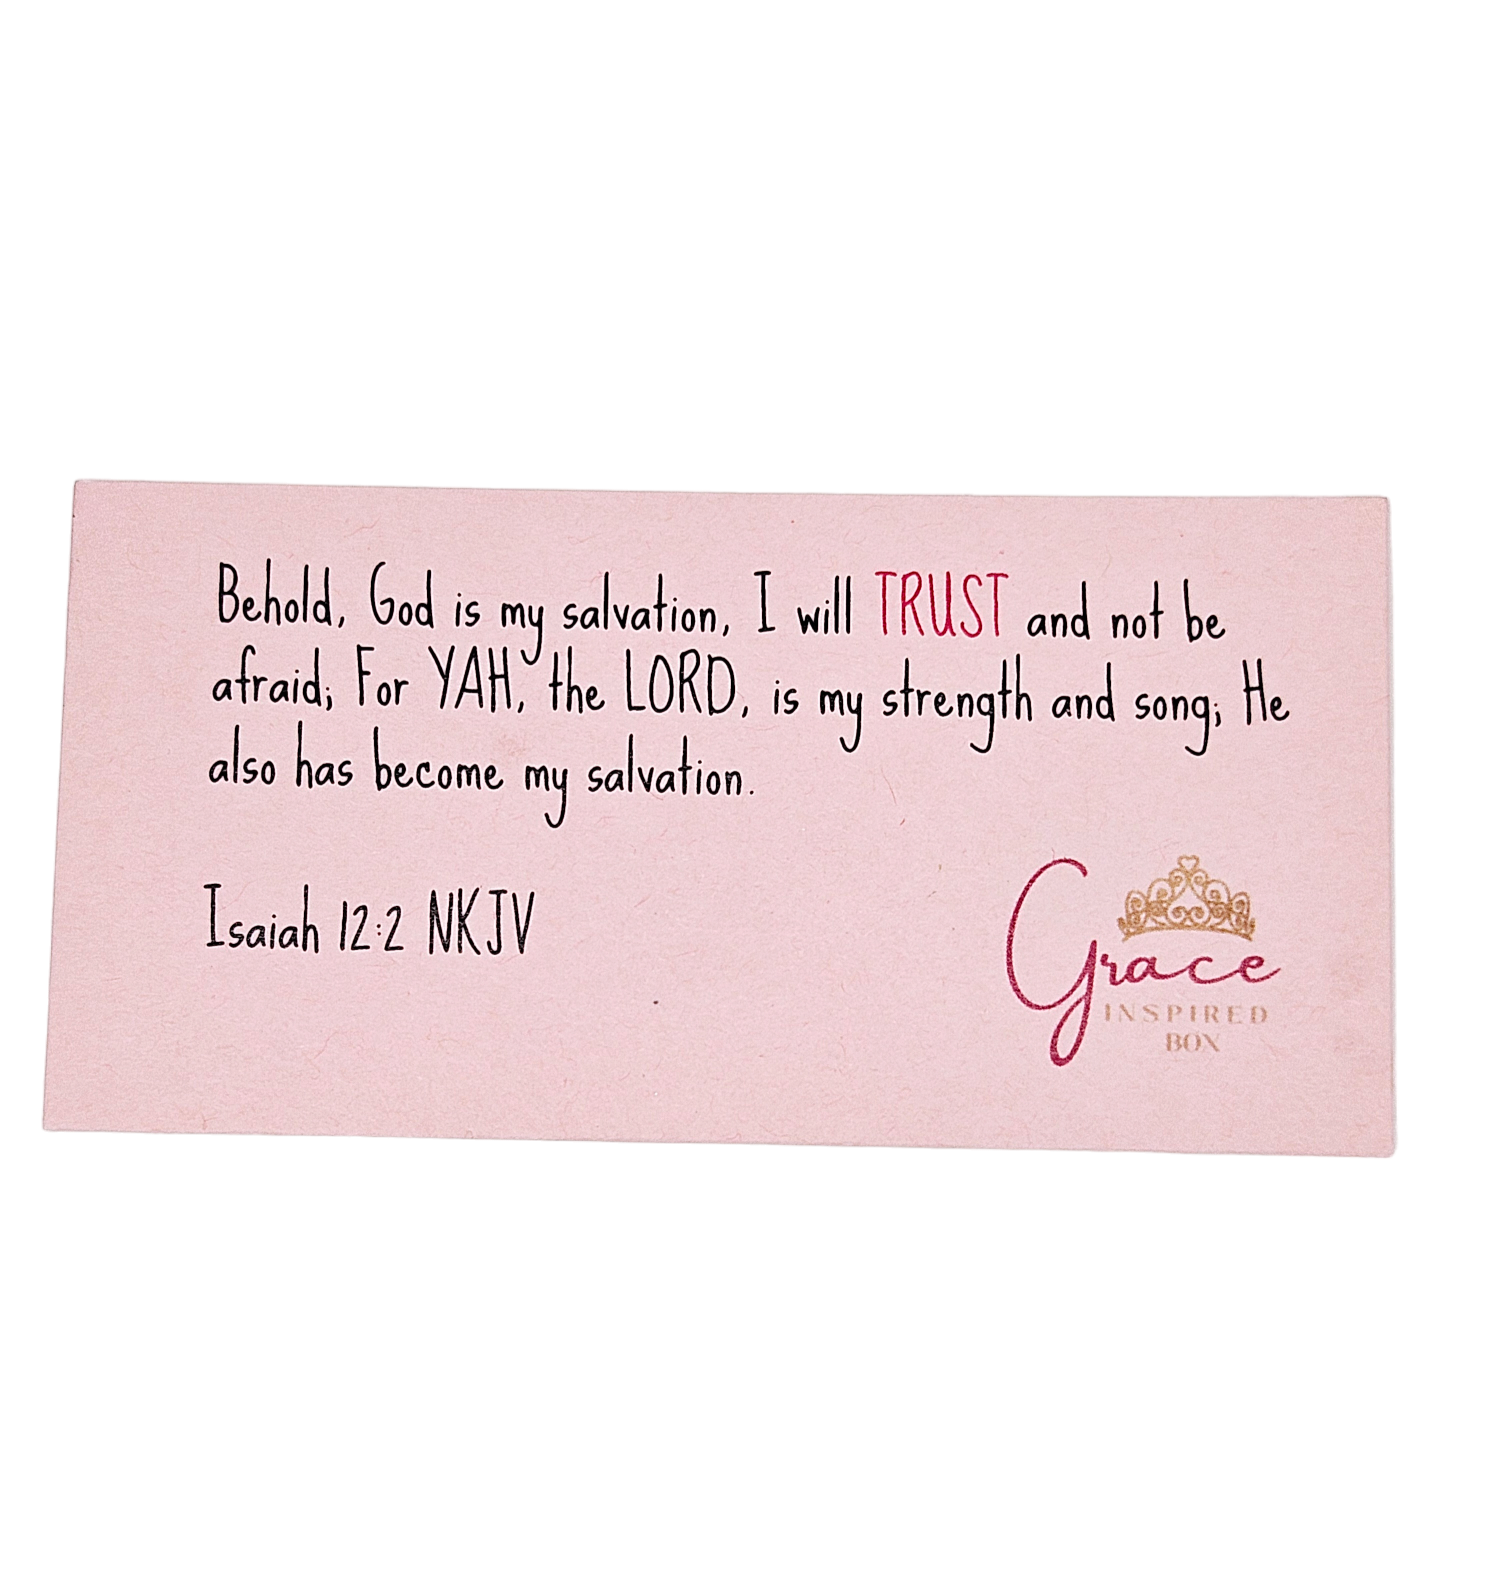 Behold, God is my salvation, I will TRUST and not be
afraid; For YAH, the LORD, is my strength and song; He
also has become my salvation.
Isaiah 12:2 NKJV
Grace
INSPIRED
BOX